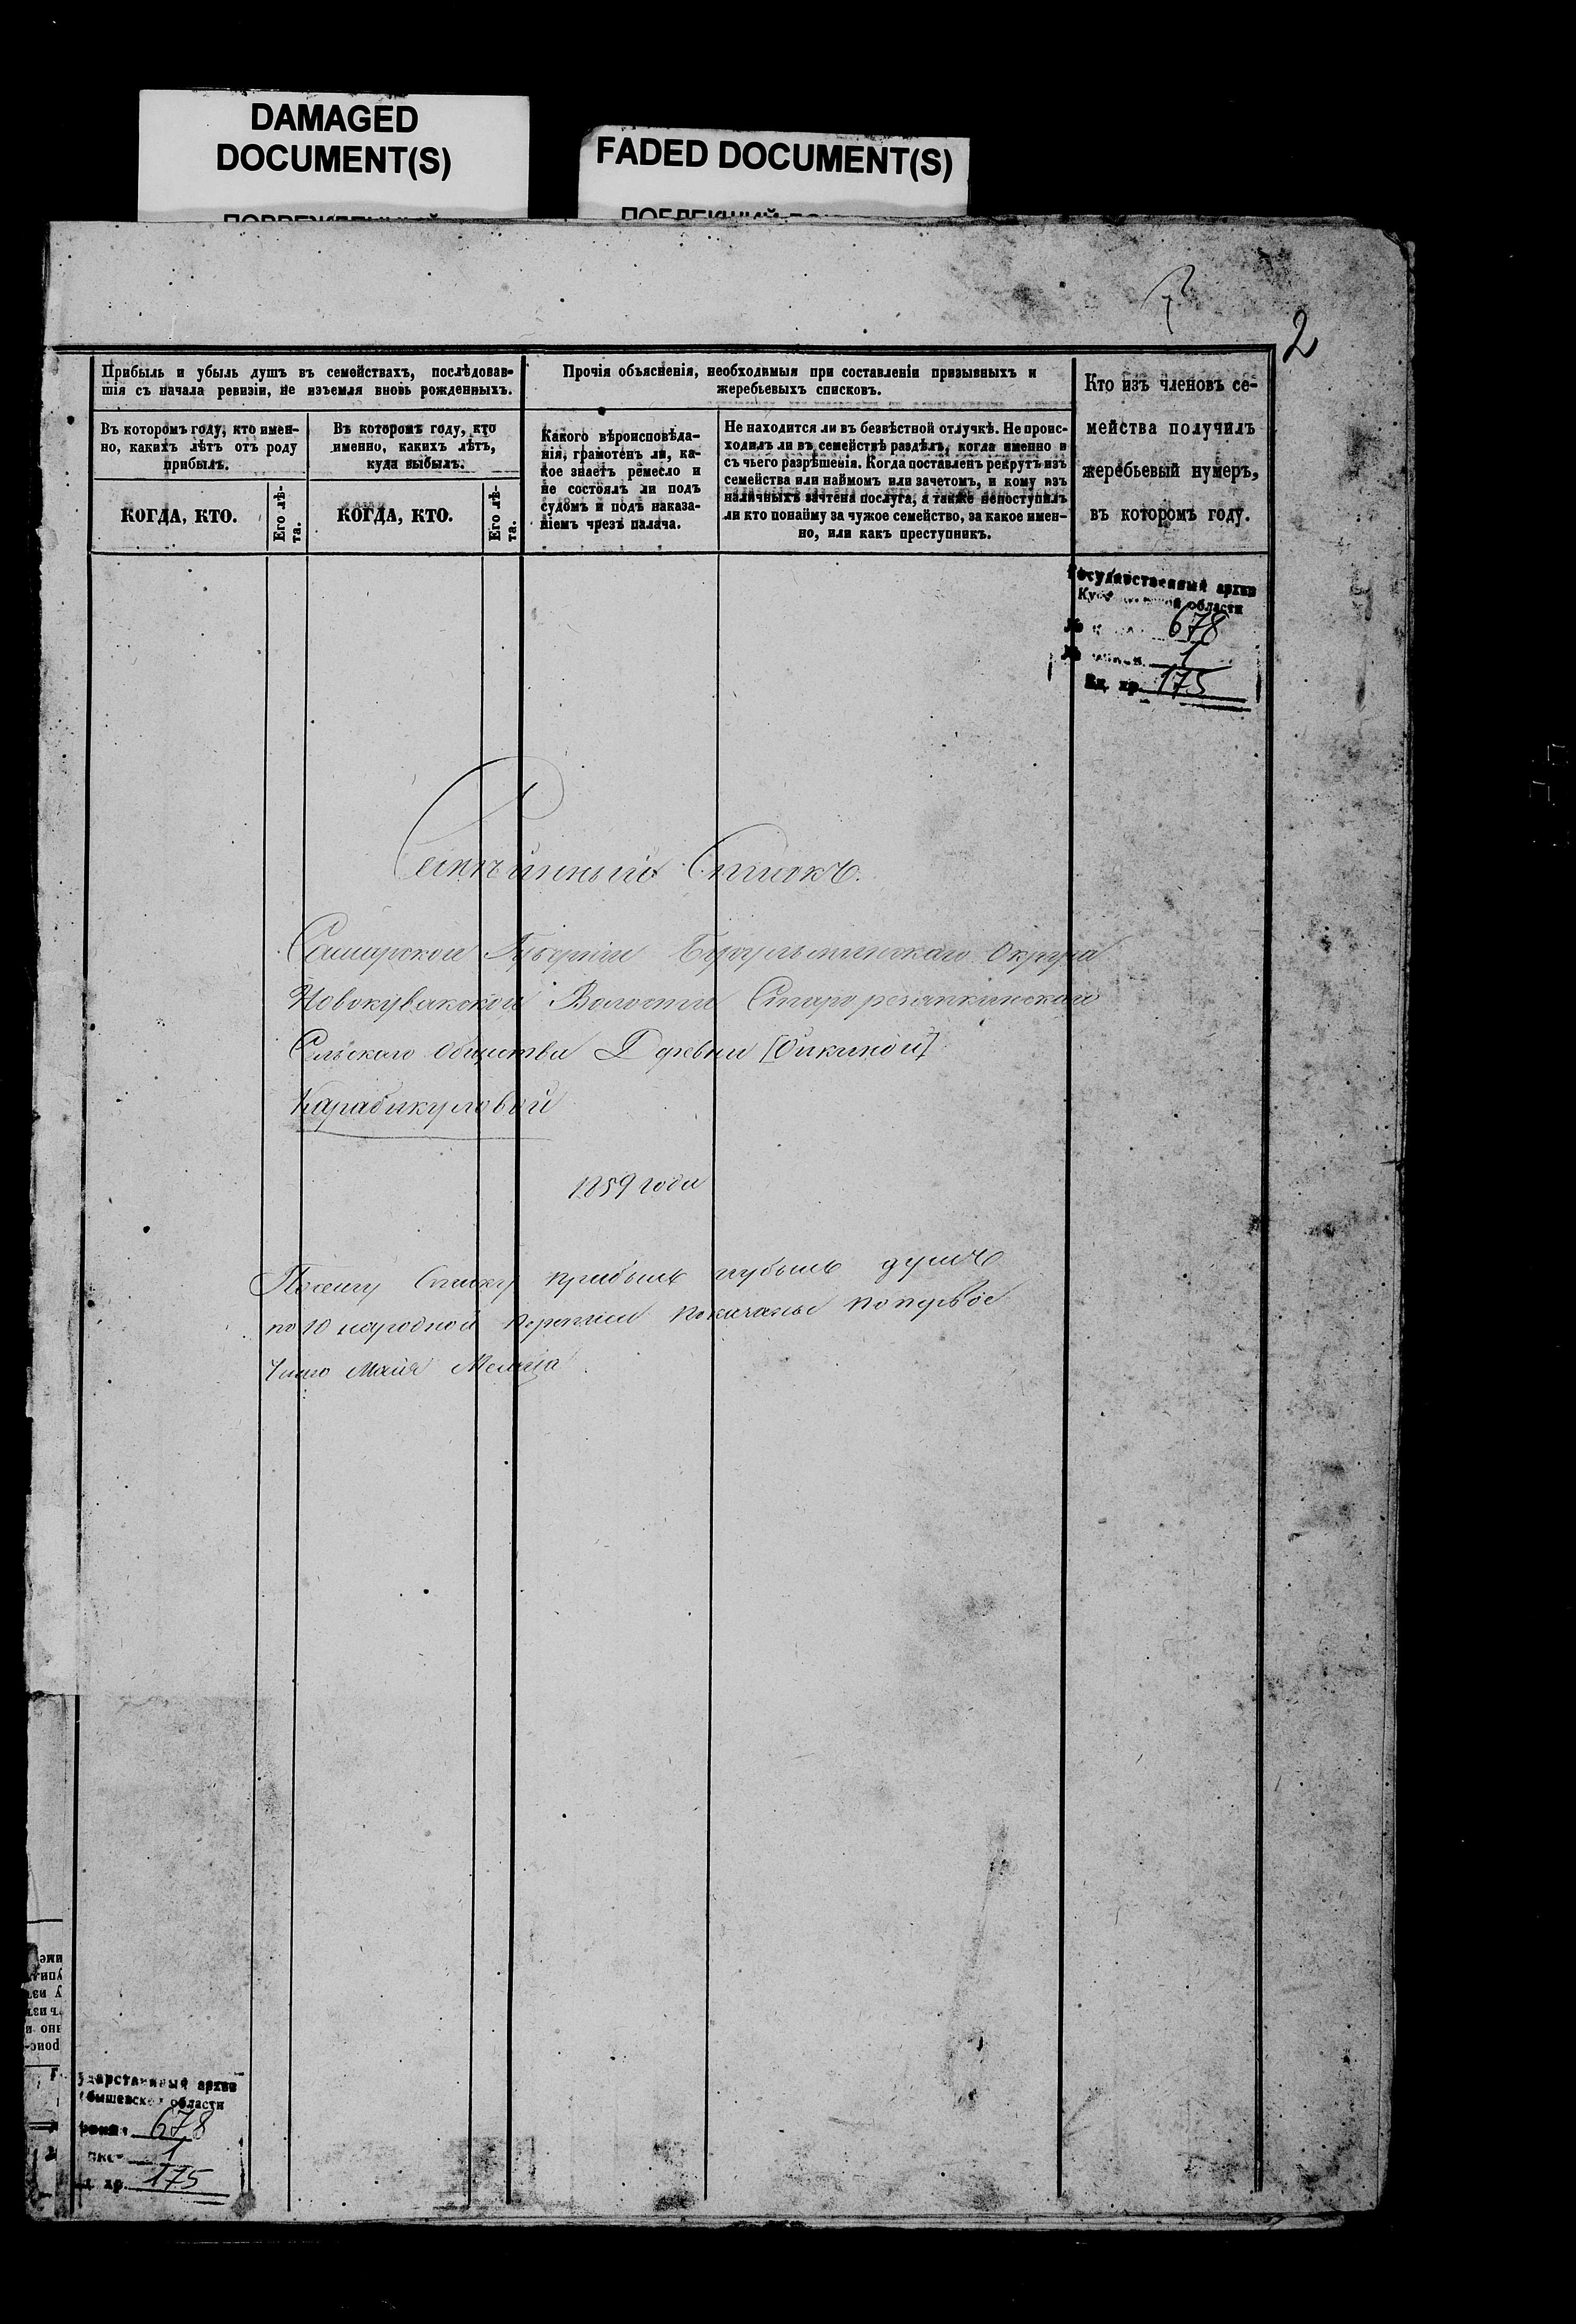 DAMAGED
DOCUMENT(S)
FADED DOCUMENT(S)
2
Прибыль и убыль душъ въ семействахъ, послѣдовав-
шія съ начала ревизіи, не изъемля вновь рожденныхъ.
Въ которомъ году, кто имен-
но, какихъ лѣтъ отъ роду
прибылъ.
КОГДА, КТО.
Его лѣ-
та.
Въ которомъ году, кто
именно, какихъ лѣтъ,
куда выбылъ.
КОГДА, КТО.
Его лѣ-
та.
Прочія объясненія, необходимыя при составленіи призывныхъ и
жеребьевыхъ списковъ.
Какого вѣроисповѣда-
нія, грамотенъ ли, ка-
кое знаетъ ремесло и
не состоялъ ли подъ
судомъ и подъ наказа-
ніемъ чрезъ палача.
Не находится ли въ безвѣстной отлучкѣ. Не проис-
ходилъ ли въ семействѣ раздѣлъ, когда именно и
съ чьего разрѣшенія. Когда поставленъ рекрутъ изъ
семейства или наймомъ или зачетомъ, и кому изъ
наличныхъ зачтена послуга, а также непоступилъ
ли кто понайму за чужое семейство, за какое имен-
но, или какъ преступникъ.
Кто изъ членовъ се-
мейства получилъ
жеребьевый нумеръ,
въ которомъ году.
Государственный архив
области
№ 678
№ 1
Ед. хр. 175
Семѣйный Списокъ.
Самарской Губерніи Бугульминскаго Округа
Новокувакской Волости
Сельскаго Общества Деревни
Карабикуловой
1859 года
Посему Списку прибыль иубыль душъ
по 10 народной переписи показаны поперьвое
Число Майя Месяца
ударственный архив
бышевской области
678
1
хр. 175